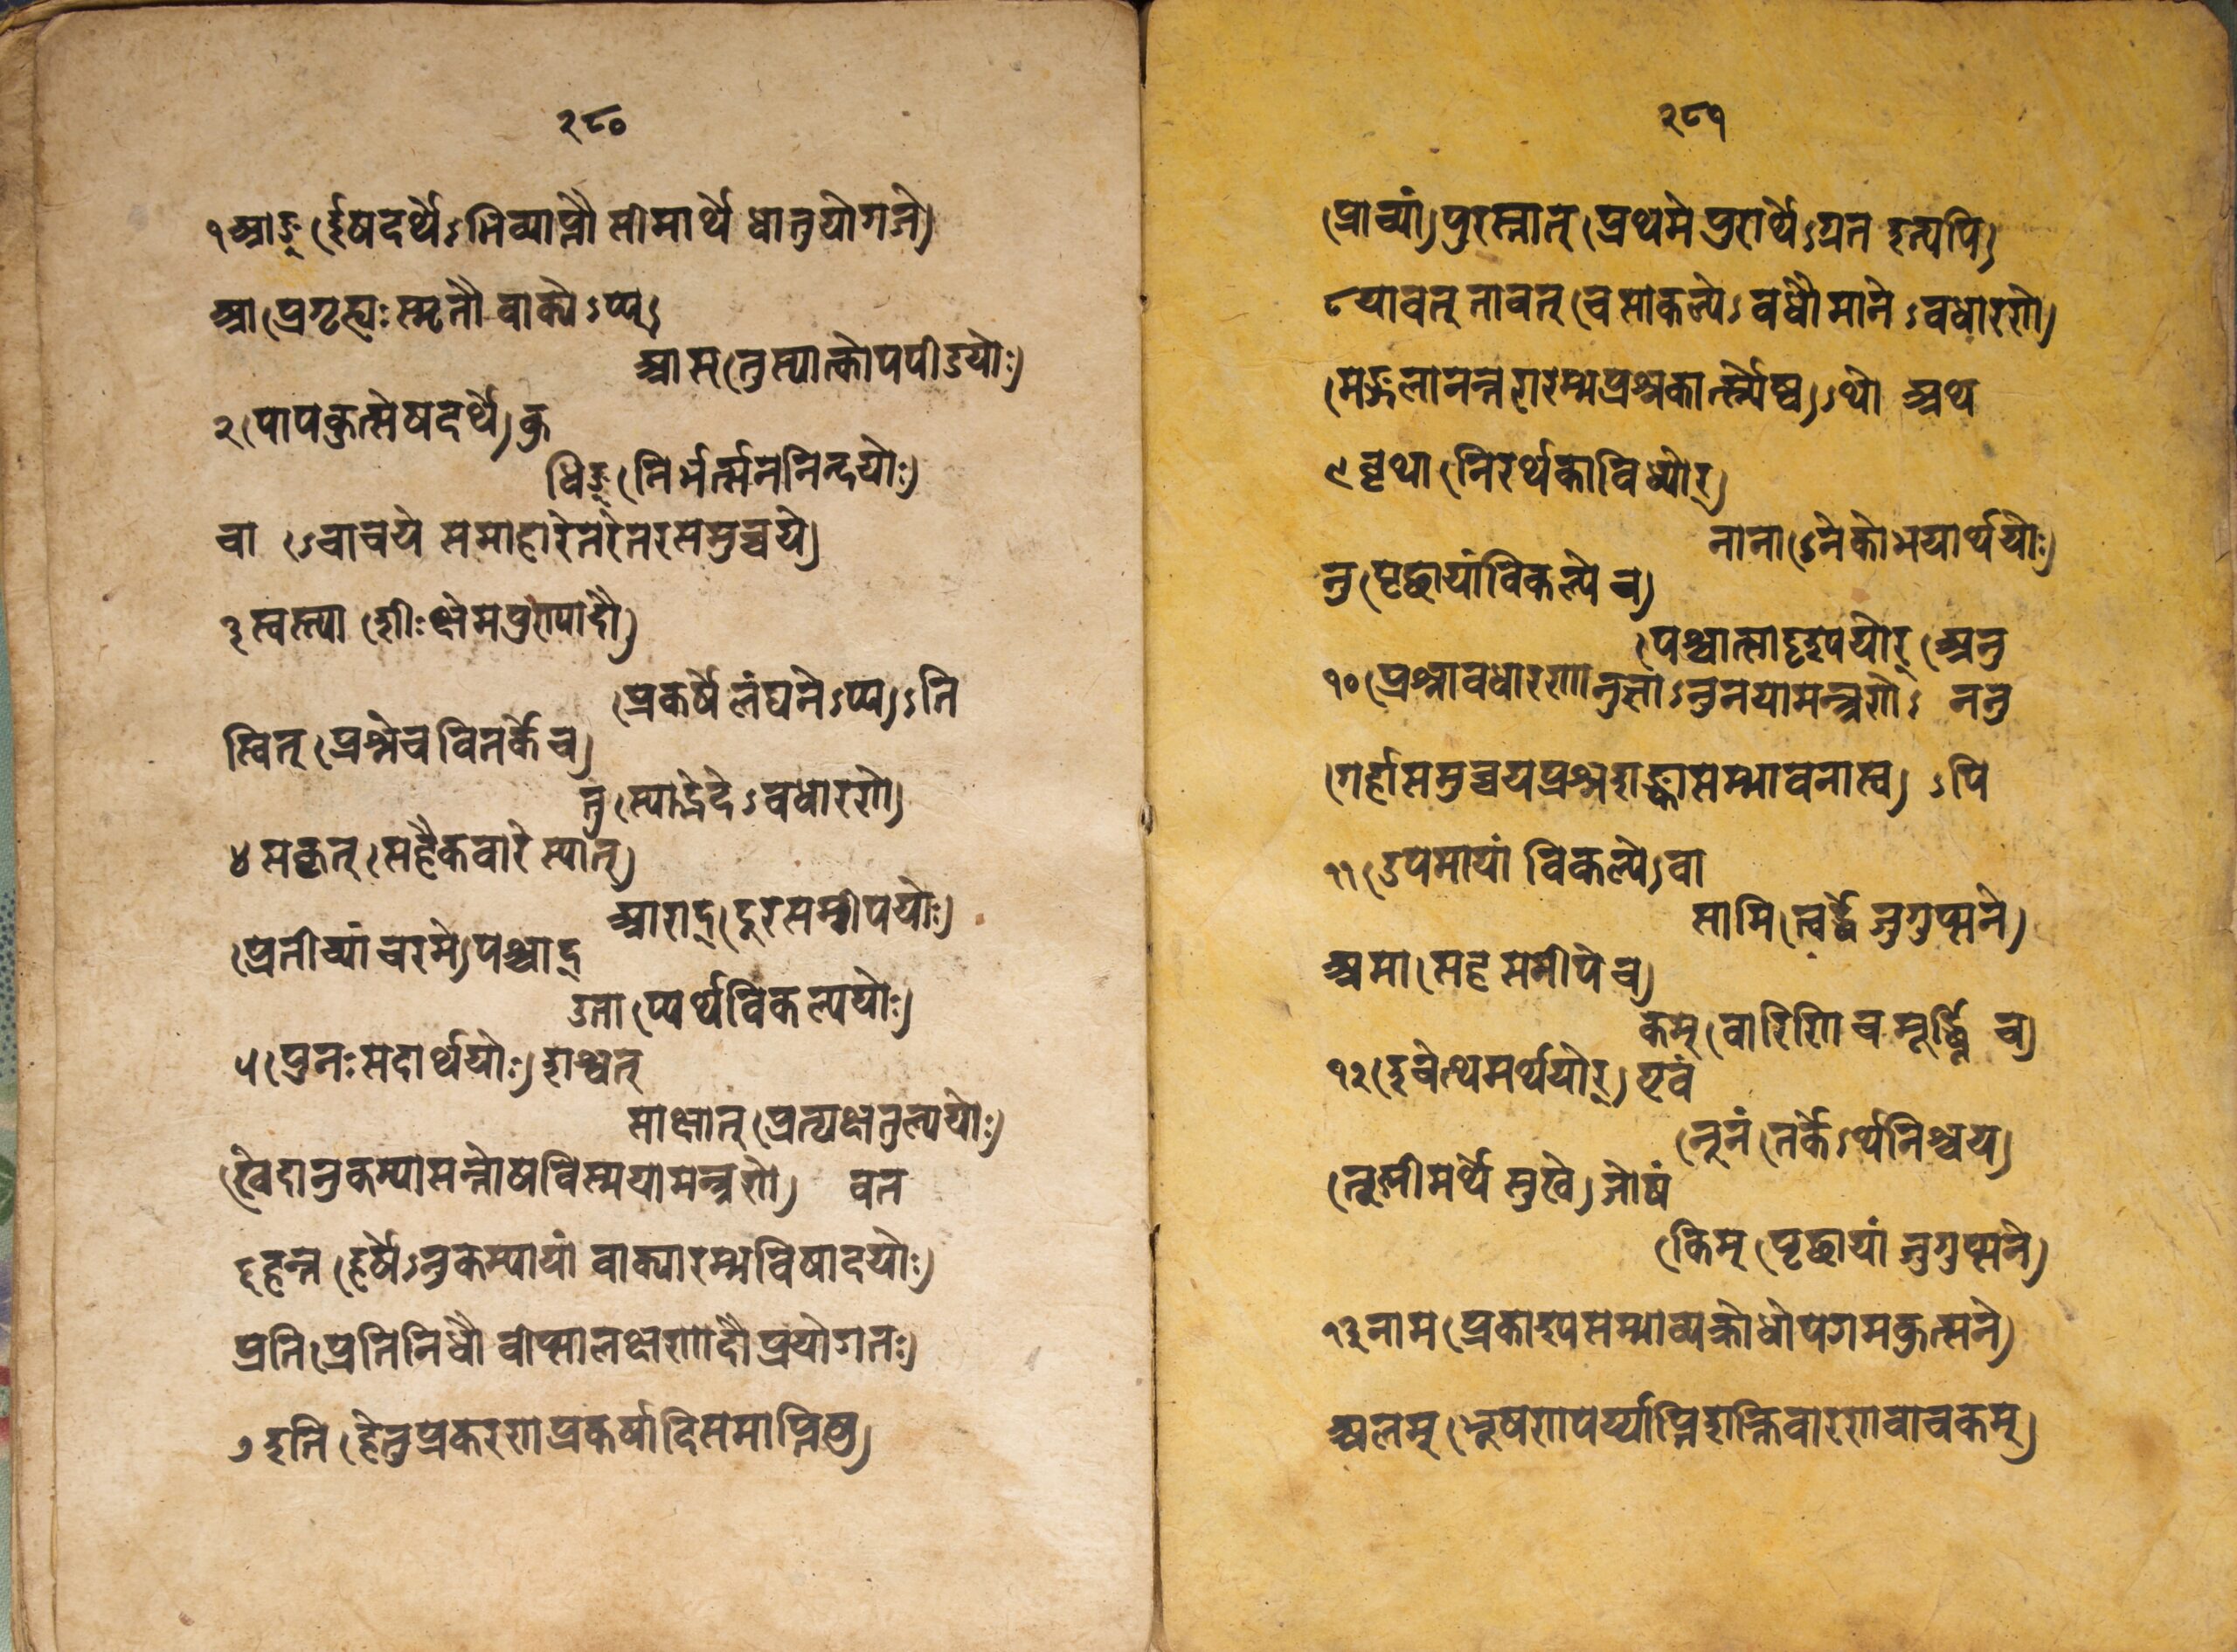 २८०
१ आङ् (ईषदर्थेऽभिव्याप्तौ सीमार्थे धातुयोगजे)
आ (प्रगृह्यः स्मृतौ वाक्येऽप्य्)
आस् (तु स्यात्कोपपीडयोः)
२ (पापकुत्सेषदर्थे) कु
धिङ् (निर्भर्त्सननिन्दयोः)
चा (ऽचाचये समाहारेतरेतरसमुच्चये)
३ स्वस्त्या (शीःक्षेमपुरापादौ)
(प्रकर्षे लंघनेऽप्य)ऽति
स्वित् (प्रश्ने च वितर्के च)
तु (स्याद्भेदेऽवधारणे)
४ सकृत् (सहैकवारे स्यात्)
आराद् (दूरसमीपयोः)
(प्रतीच्यां चरमे) पश्चाद्
उता (प्यर्थविकल्पयोः)
५ (पुनःसदार्थयोः) शश्वत्
साक्षात् (प्रत्यक्षतुल्ययोः)
(खेदानुकम्पासन्तोषविस्मयामन्त्रणे) वत
६ हन्त (हर्षेऽनुकम्पायां वाक्यारम्भविषादयोः)
प्रति (प्रतिनिधौ वीप्सालक्षणादौ प्रयोगतः)
७ इति (हेतुप्रकरणप्रकर्षादिसमाप्तिषु)
२८१
(प्राच्यां) पुरस्तात् (प्रथमे पुरार्थेऽग्रत इत्यपि)
८ यावत् तावत् (च साकल्येऽवधौ मानेऽवधारणे)
(मङ्गलानन्तरारम्भप्रश्नकार्त्स्न्येष्व)ऽथो अथ
९ वृथा (निरर्थकाविध्योर्)
नाना (ऽनेकोभयार्थयोः)
नु (पृच्छायां विकल्पे च)
(पश्चात्सादृश्ययोर्) (अनु
१० (प्रश्नावधारणानुज्ञाऽनुनयामन्त्रणेऽ ननु
(गर्हासमुच्चयप्रश्नशङ्कासम्भावनास्व) ऽपि
११ (उपमायां विकल्पे) वा
सामि (त्वर्द्धे जुगुप्सने)
अमा (सह समीपे च)
कम् (वारिणि च मूर्द्ध्नि च)
१२ (इवेत्थमर्थयोर्) एवं
नूनं (तर्केऽर्थनिश्चय)
(तूष्णीमर्थे सुखे) जोषं
(किम् (पृच्छायां जुगुप्सने)
१३ नाम (प्रकाश्यसम्भाव्यक्रोधोपगमकुत्सने)
अलम् (भूषणपर्य्याप्तिशक्तिवारणवाचकम्)